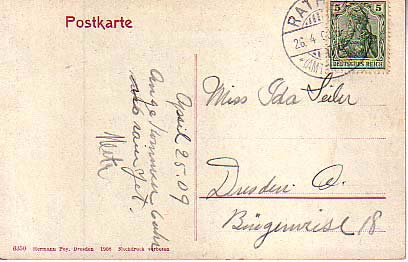 Postkarte
RAT
26.4.
5 5
DEUTSCHES REICH
April 25.09
Meta
Miss Ida Seiler
Dresden A.
Bürgerwiese 18
6350 Hermann Poy, Dresden 1906 Nachdruck verboten